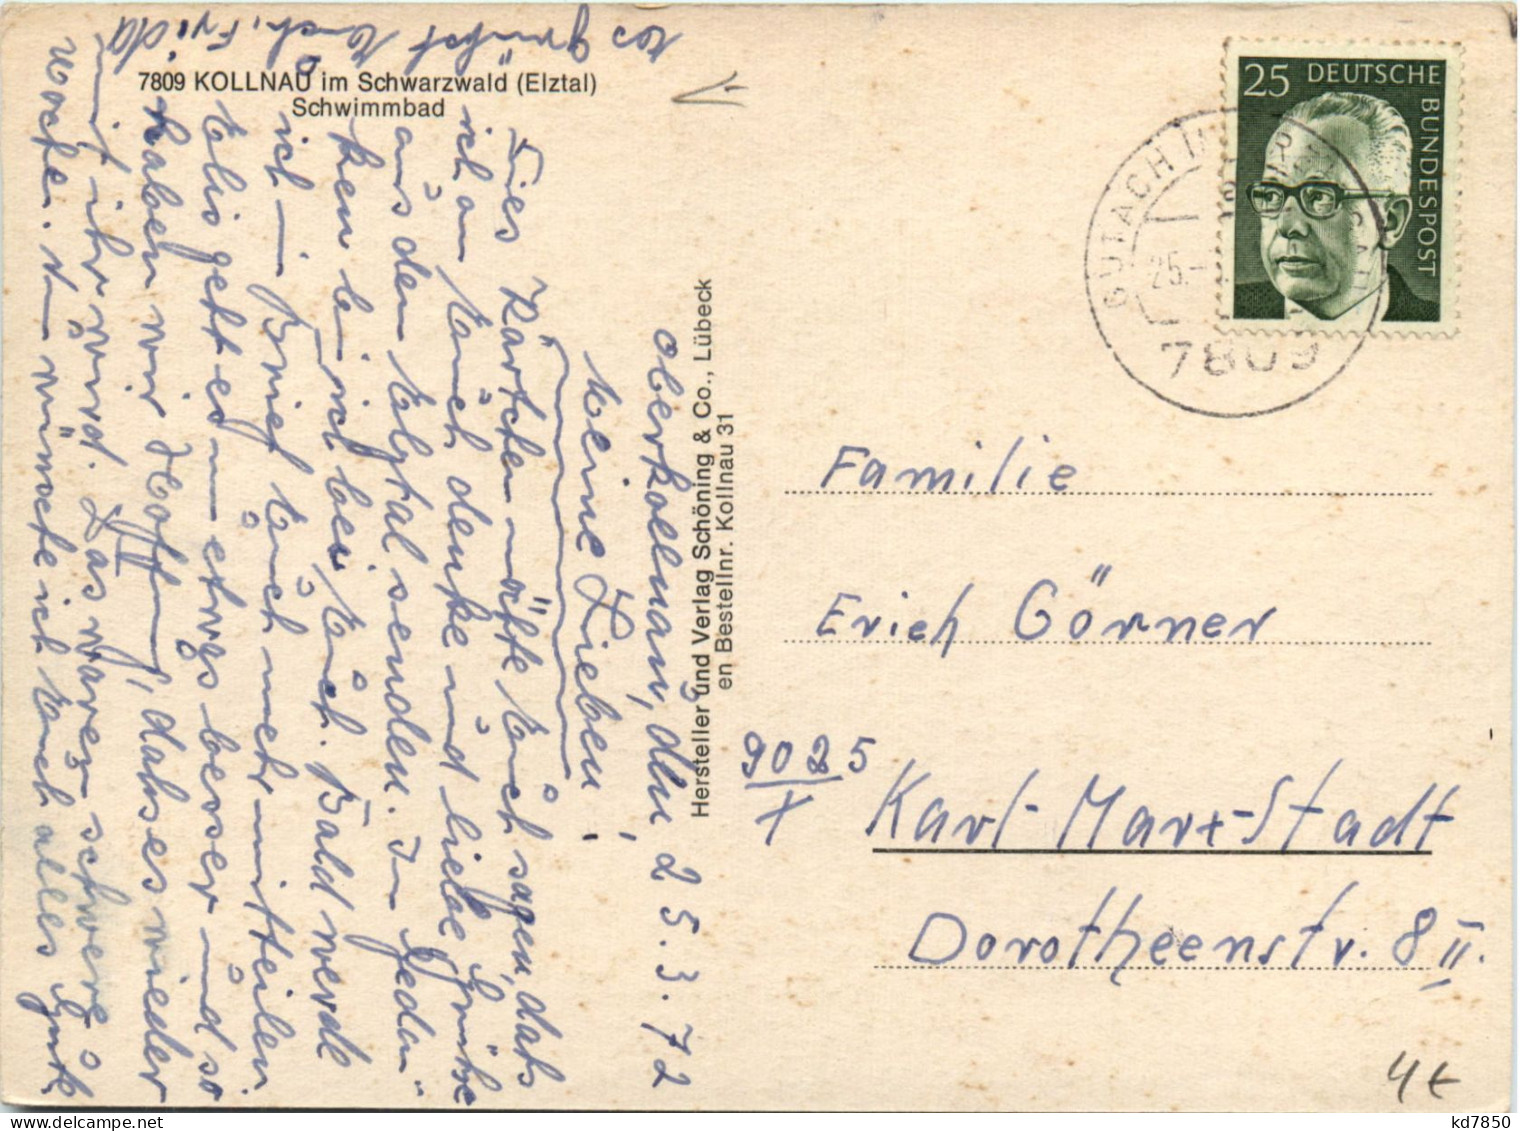 7809 KOLLNAU im Schwarzwald (Elztal)
Schwimmbad
Oberkollnau, den 25.3.72
Meine Lieben!
Dies Kärtchen möchte Euch sagen, dass
ich an Euch denke und liebe Grüße
aus dem Elztal senden. In Gedan-
ken bin ich bei Euch. Bald werde
ich im Brief Euch mehr mitteilen.
Elis geht es etwas besser und so
haben wir Hoffnung, dass es wieder
mit ihr wird. Das waren schwere
Wochen. Nun wünsche ich Euch alles Gute
es grüßt Euch, Frida
Hersteller und Verlag Schöning & Co., Lübeck
en Bestellnr. Kollnau 31
25 DEUTSCHE
BUNDESPOST
GUTACH
25.
7809
Familie
Erich Görner
9025
X
Karl-Marx-Stadt
Dorotheenstr. 8 II.
4 €
kd7850